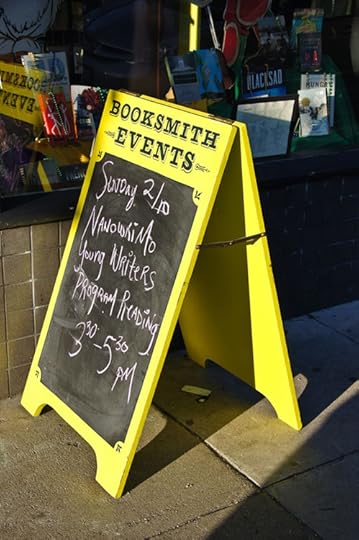 BOOKSMITH
EVENTS
SUNDAY 2/10
NANOWRIMO
YOUNG WRITERS
PROGRAM READING
3:30-5:30
PM
BLACKSAD
HUNGRY
BOOKSMITH
EVENTS